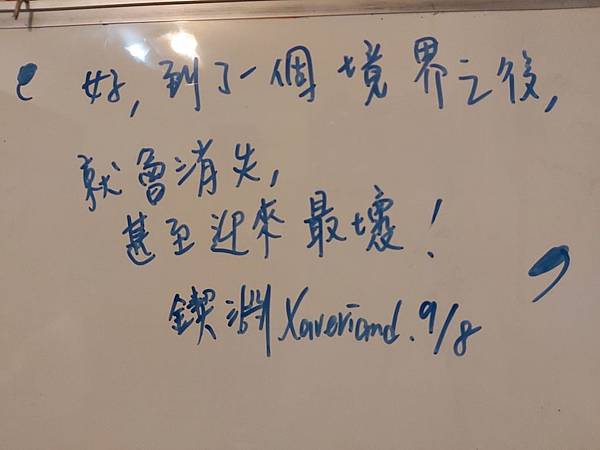 好,到了一個境界之後,
就會消失,
甚至迎來最壞!
鍥淵 Xaveriomd. 9/8